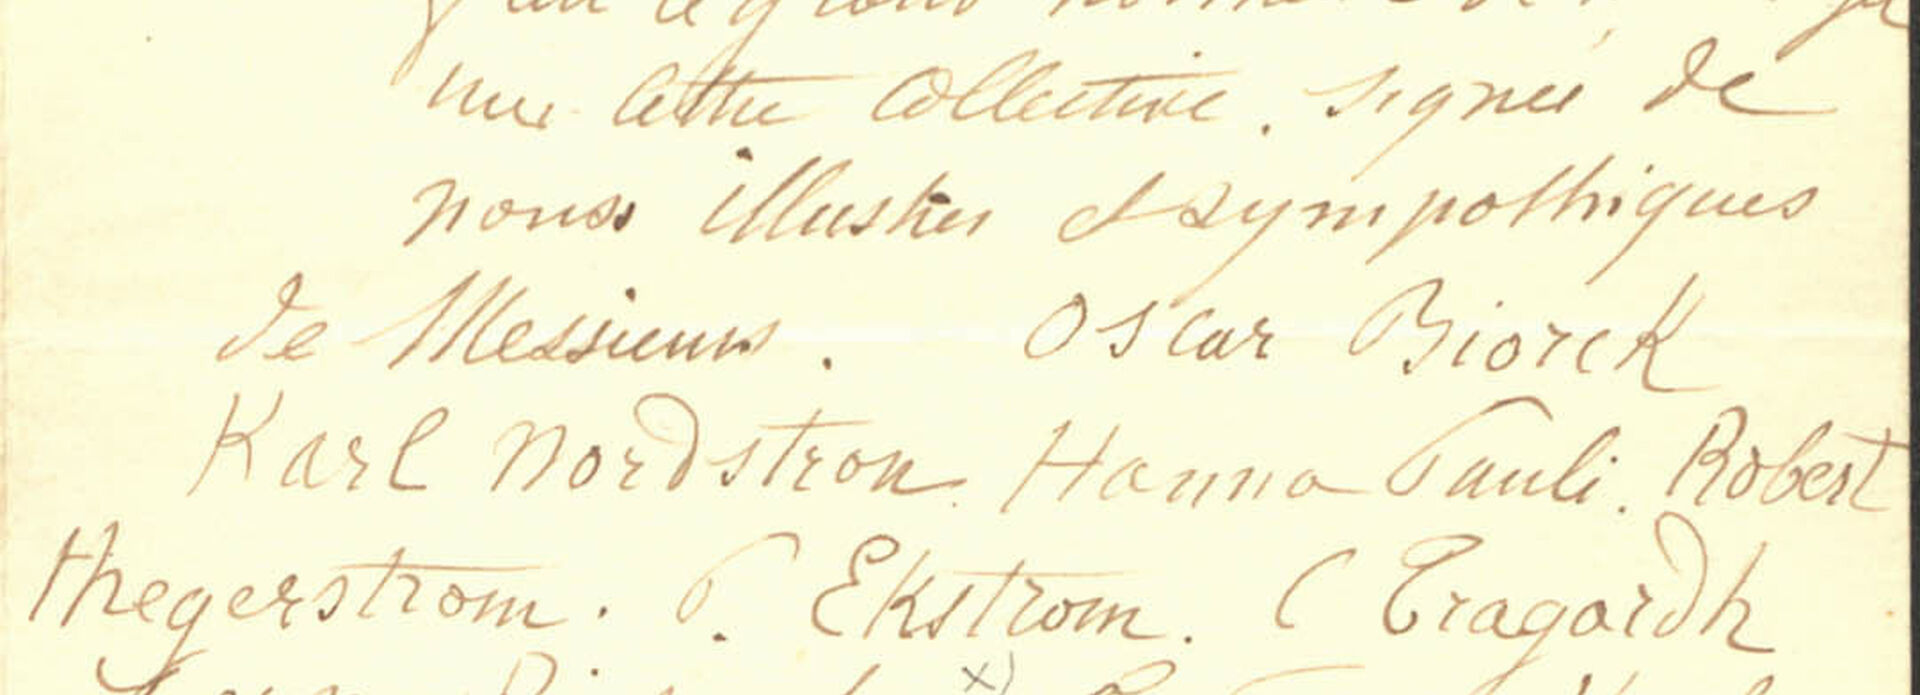 une lettre Collective. signée de
nous illustres et sympathiques
de Messieurs. Oscar Biorck
Karl Nordstron. Hanna Pauli. Robert
thegerstrom. P. Ekstrom. C Tragardh
x)